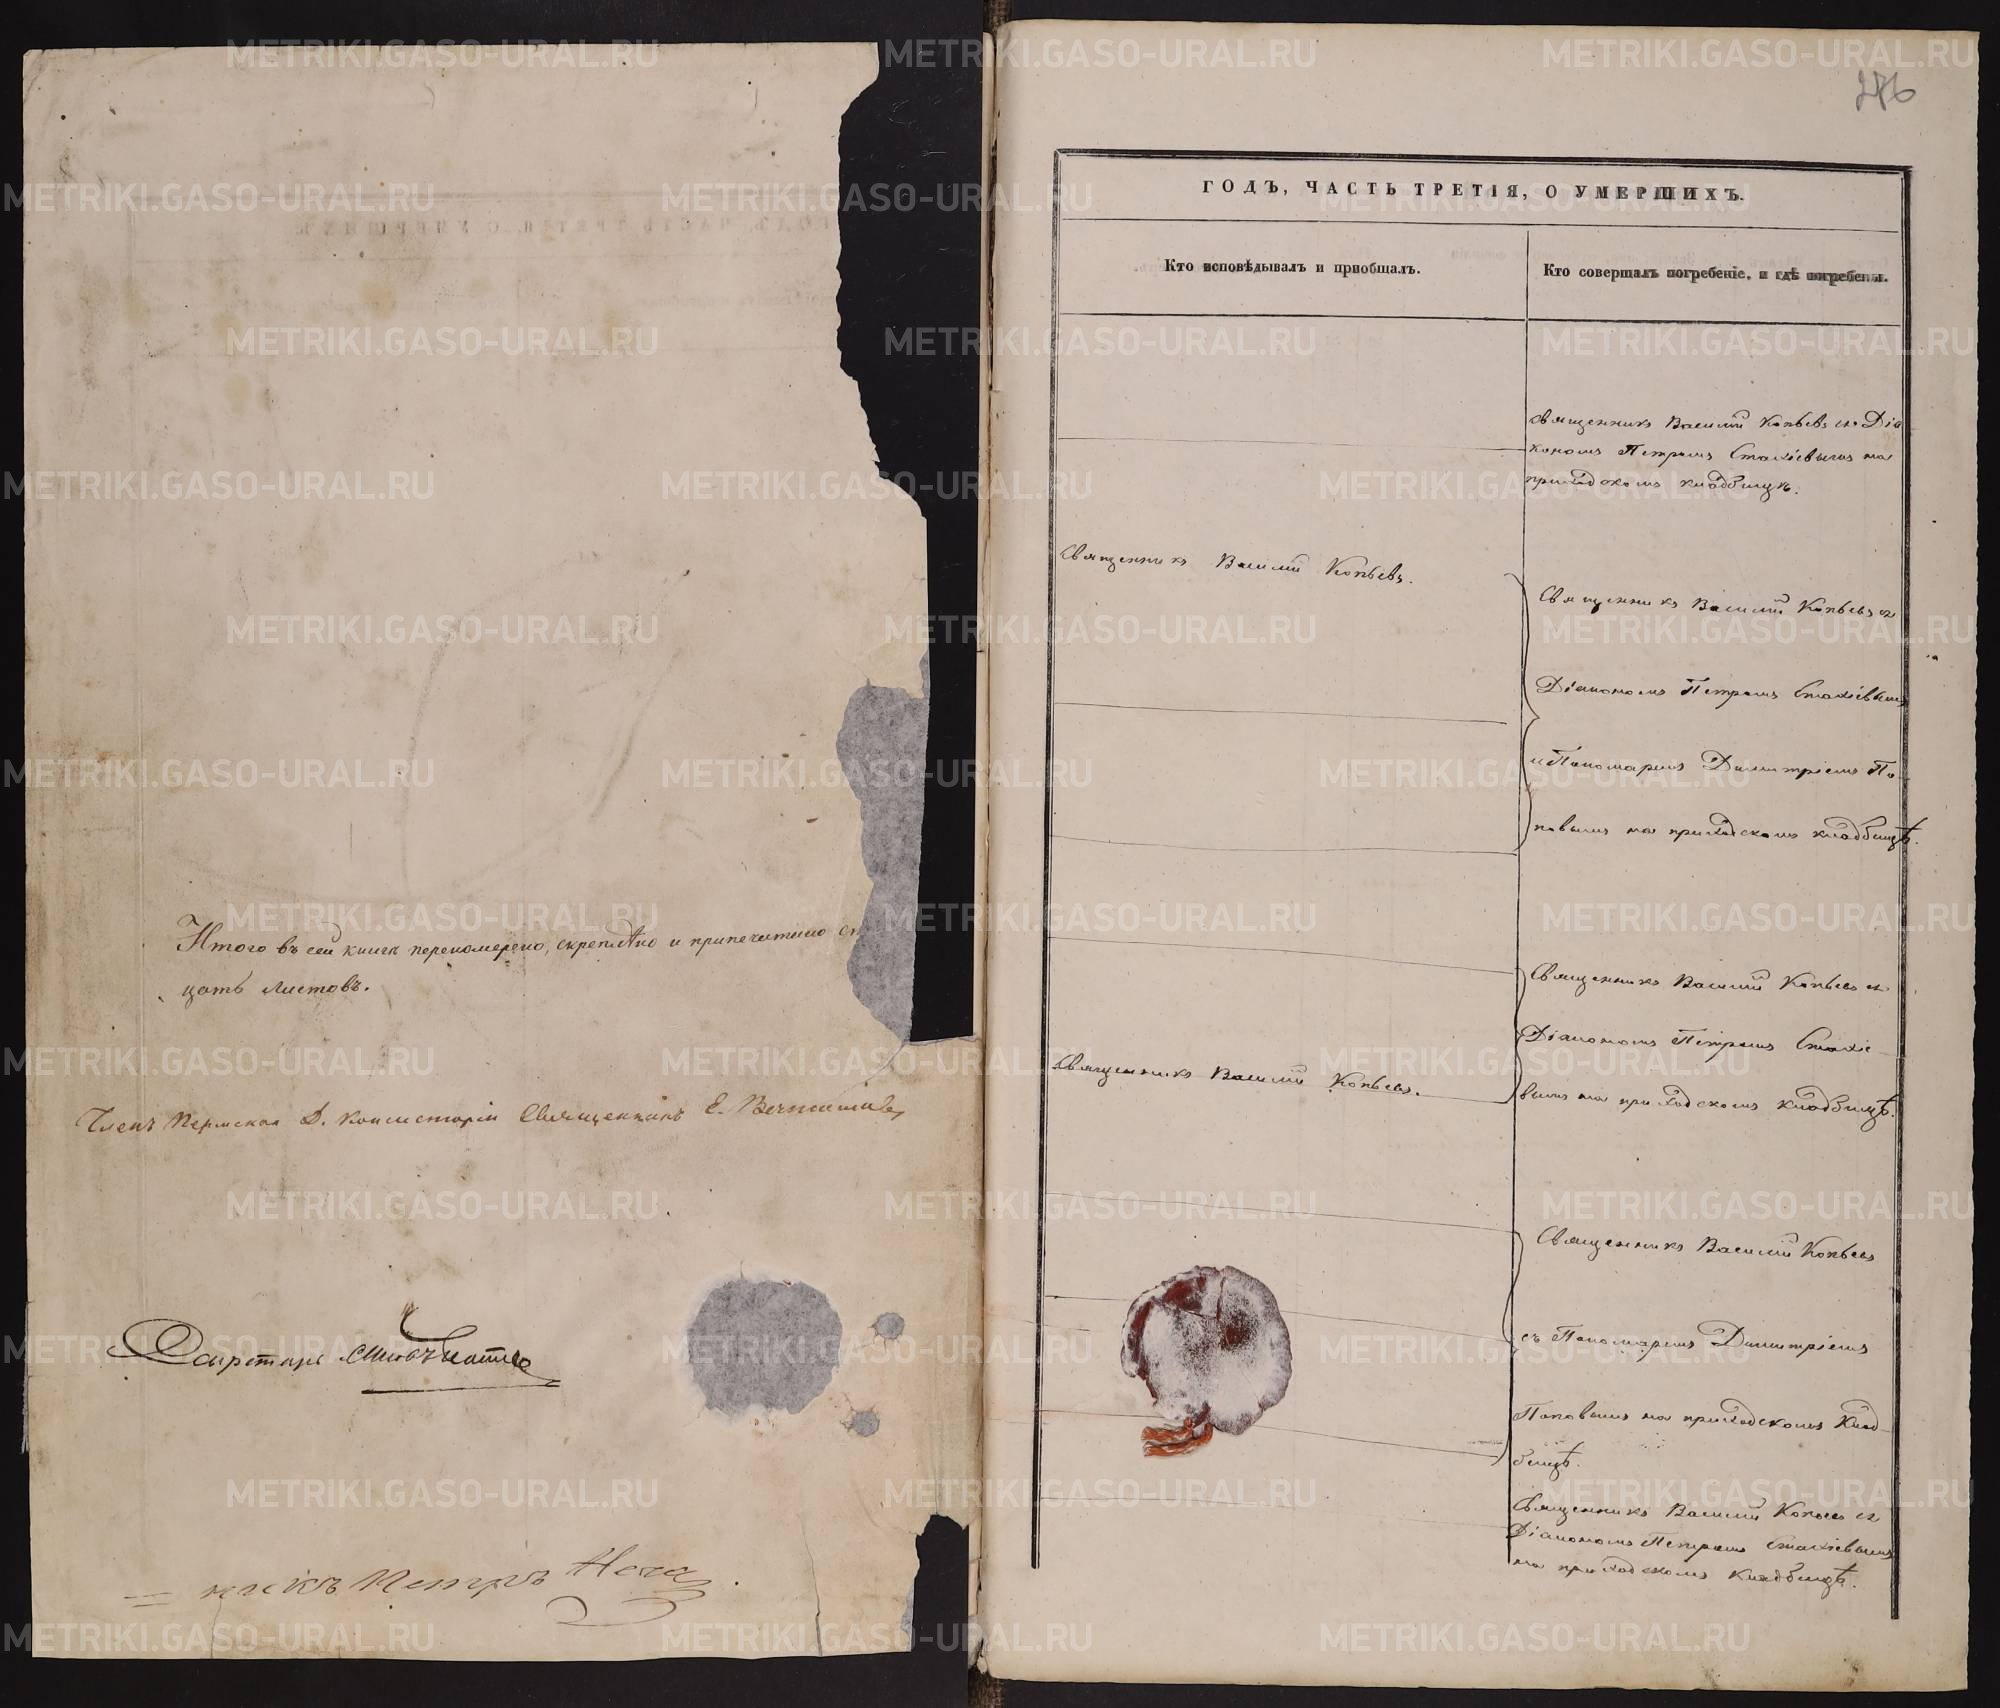 Итого въ сей книгѣ перенумерено, скреплено и припечатано
цать листовъ.
Членъ Пермской Д. Консисторіи Священникъ Е.
Секретарь
никъ Петръ
276
ГОДЪ, ЧАСТЬ ТРЕТІЯ, О УМЕРШИХЪ.
Кто исповѣдывалъ и пріобщалъ.
Кто совершалъ погребеніе, и гдѣ погребены.
Священникъ Василій Копьевъ съ Діа
кономъ Петромъ Стахіевымъ на
приходскомъ кладбищѣ.
Священникъ Василій Копьевъ.
Священникъ Василій Копьевъ съ
Діакономъ Петромъ Стахіевымъ
и Пономаремъ Димитріемъ По-
повымъ на приходскомъ кладбищѣ.
Священникъ Василій Копьевъ съ
Діакономъ Петромъ Стахіе
вымъ на приходскомъ кладбищѣ.
Священникъ Василій Копьевъ.
Священникъ Василій Копьевъ
съ Пономаремъ Димитріемъ
Поповымъ на приходскомъ клад
бищѣ.
Священникъ Василій Копьевъ съ
Діакономъ Петромъ Стахіевымъ
на приходскомъ кладбищѣ.
METRIKI.GASO-URAL.RU